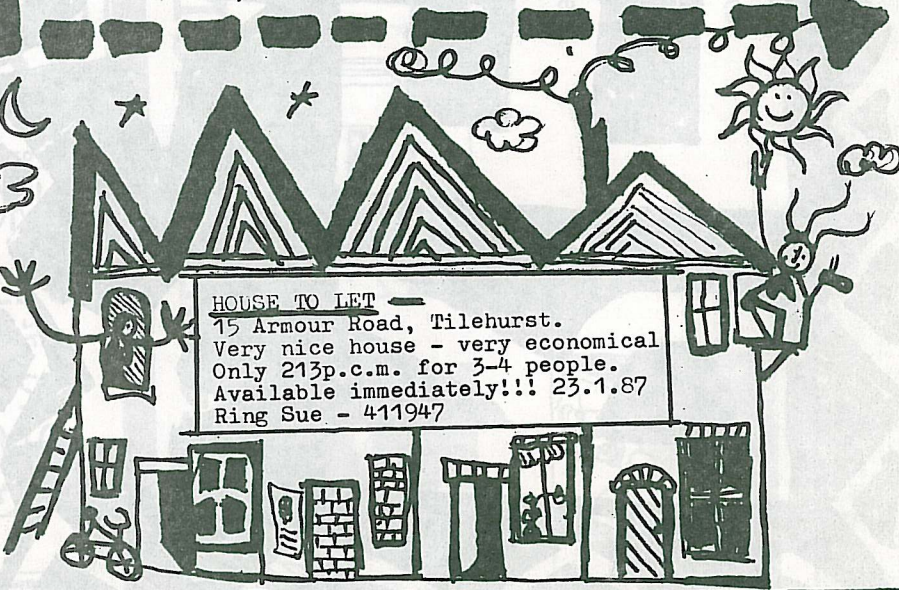 HOUSE TO LET —
15 Armour Road, Tilehurst.
Very nice house - very economical
Only 213p.c.m. for 3-4 people.
Available immediately!!! 23.1.87
Ring Sue - 411947